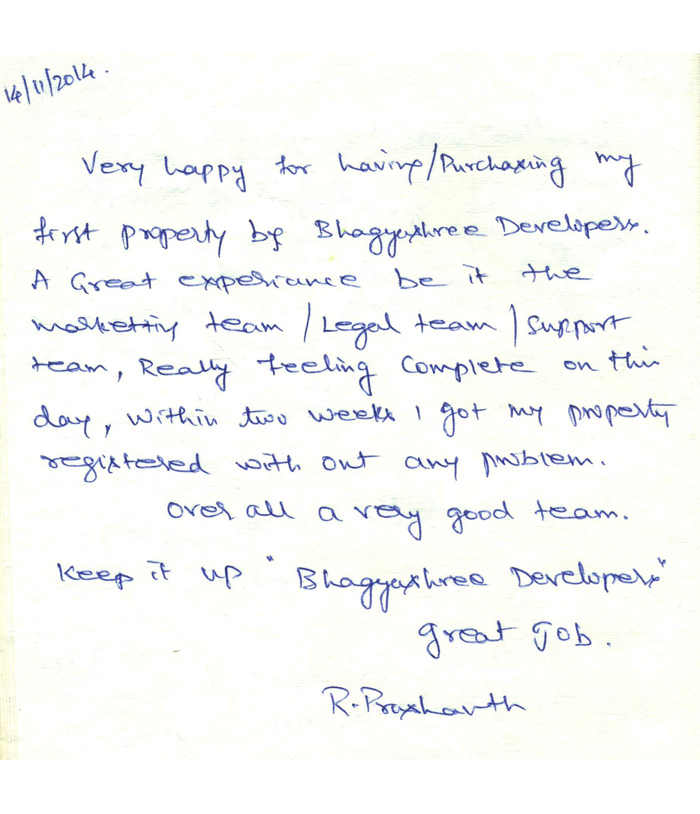 14/11/2014.
Very happy for having/Purchasing my
first property by Bhagyashree Developers.
A Great experiance be it the
marketting team / Legal team / Support
team, Really feeling Complete on this
day, within two weeks I got my property
registered with out any problem.
over all a very good team.
Keep it up "Bhagyashree Developers"
great Job.
R. Prashanth